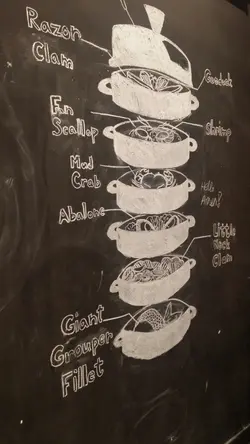 Razor
Clam
Geoduck
Fan
Scallop
Shrimp
Mud
Crab
Abalone
Little
Neck
Clam
Giant
Grouper
Fillet